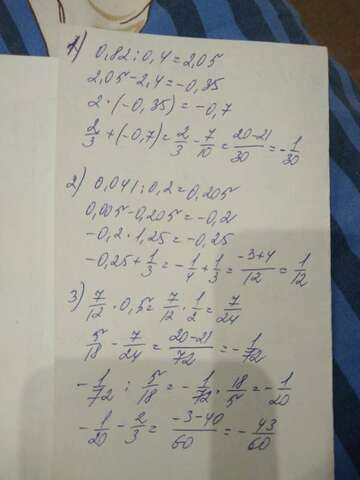 1) 0,82:0,4=2,05
2,05-2,4=-0,35
2·(-0,35)=-0,7
2/3+(-0,7)=2/3-7/10=20-21/30=-1/30
2) 0,041:0,2=0,205
0,005-0,205=-0,2
-0,2·1,25=-0,25
-0,25+1/3=-1/4+1/3=-3+4/12=1/12
3) 7/12·0,5=7/12·1/2=7/24
5/18-7/24=20-21/72=-1/72
-1/72:5/18=-1/72·18/5=-1/20
-1/20-2/3=-3-40/60=-43/60